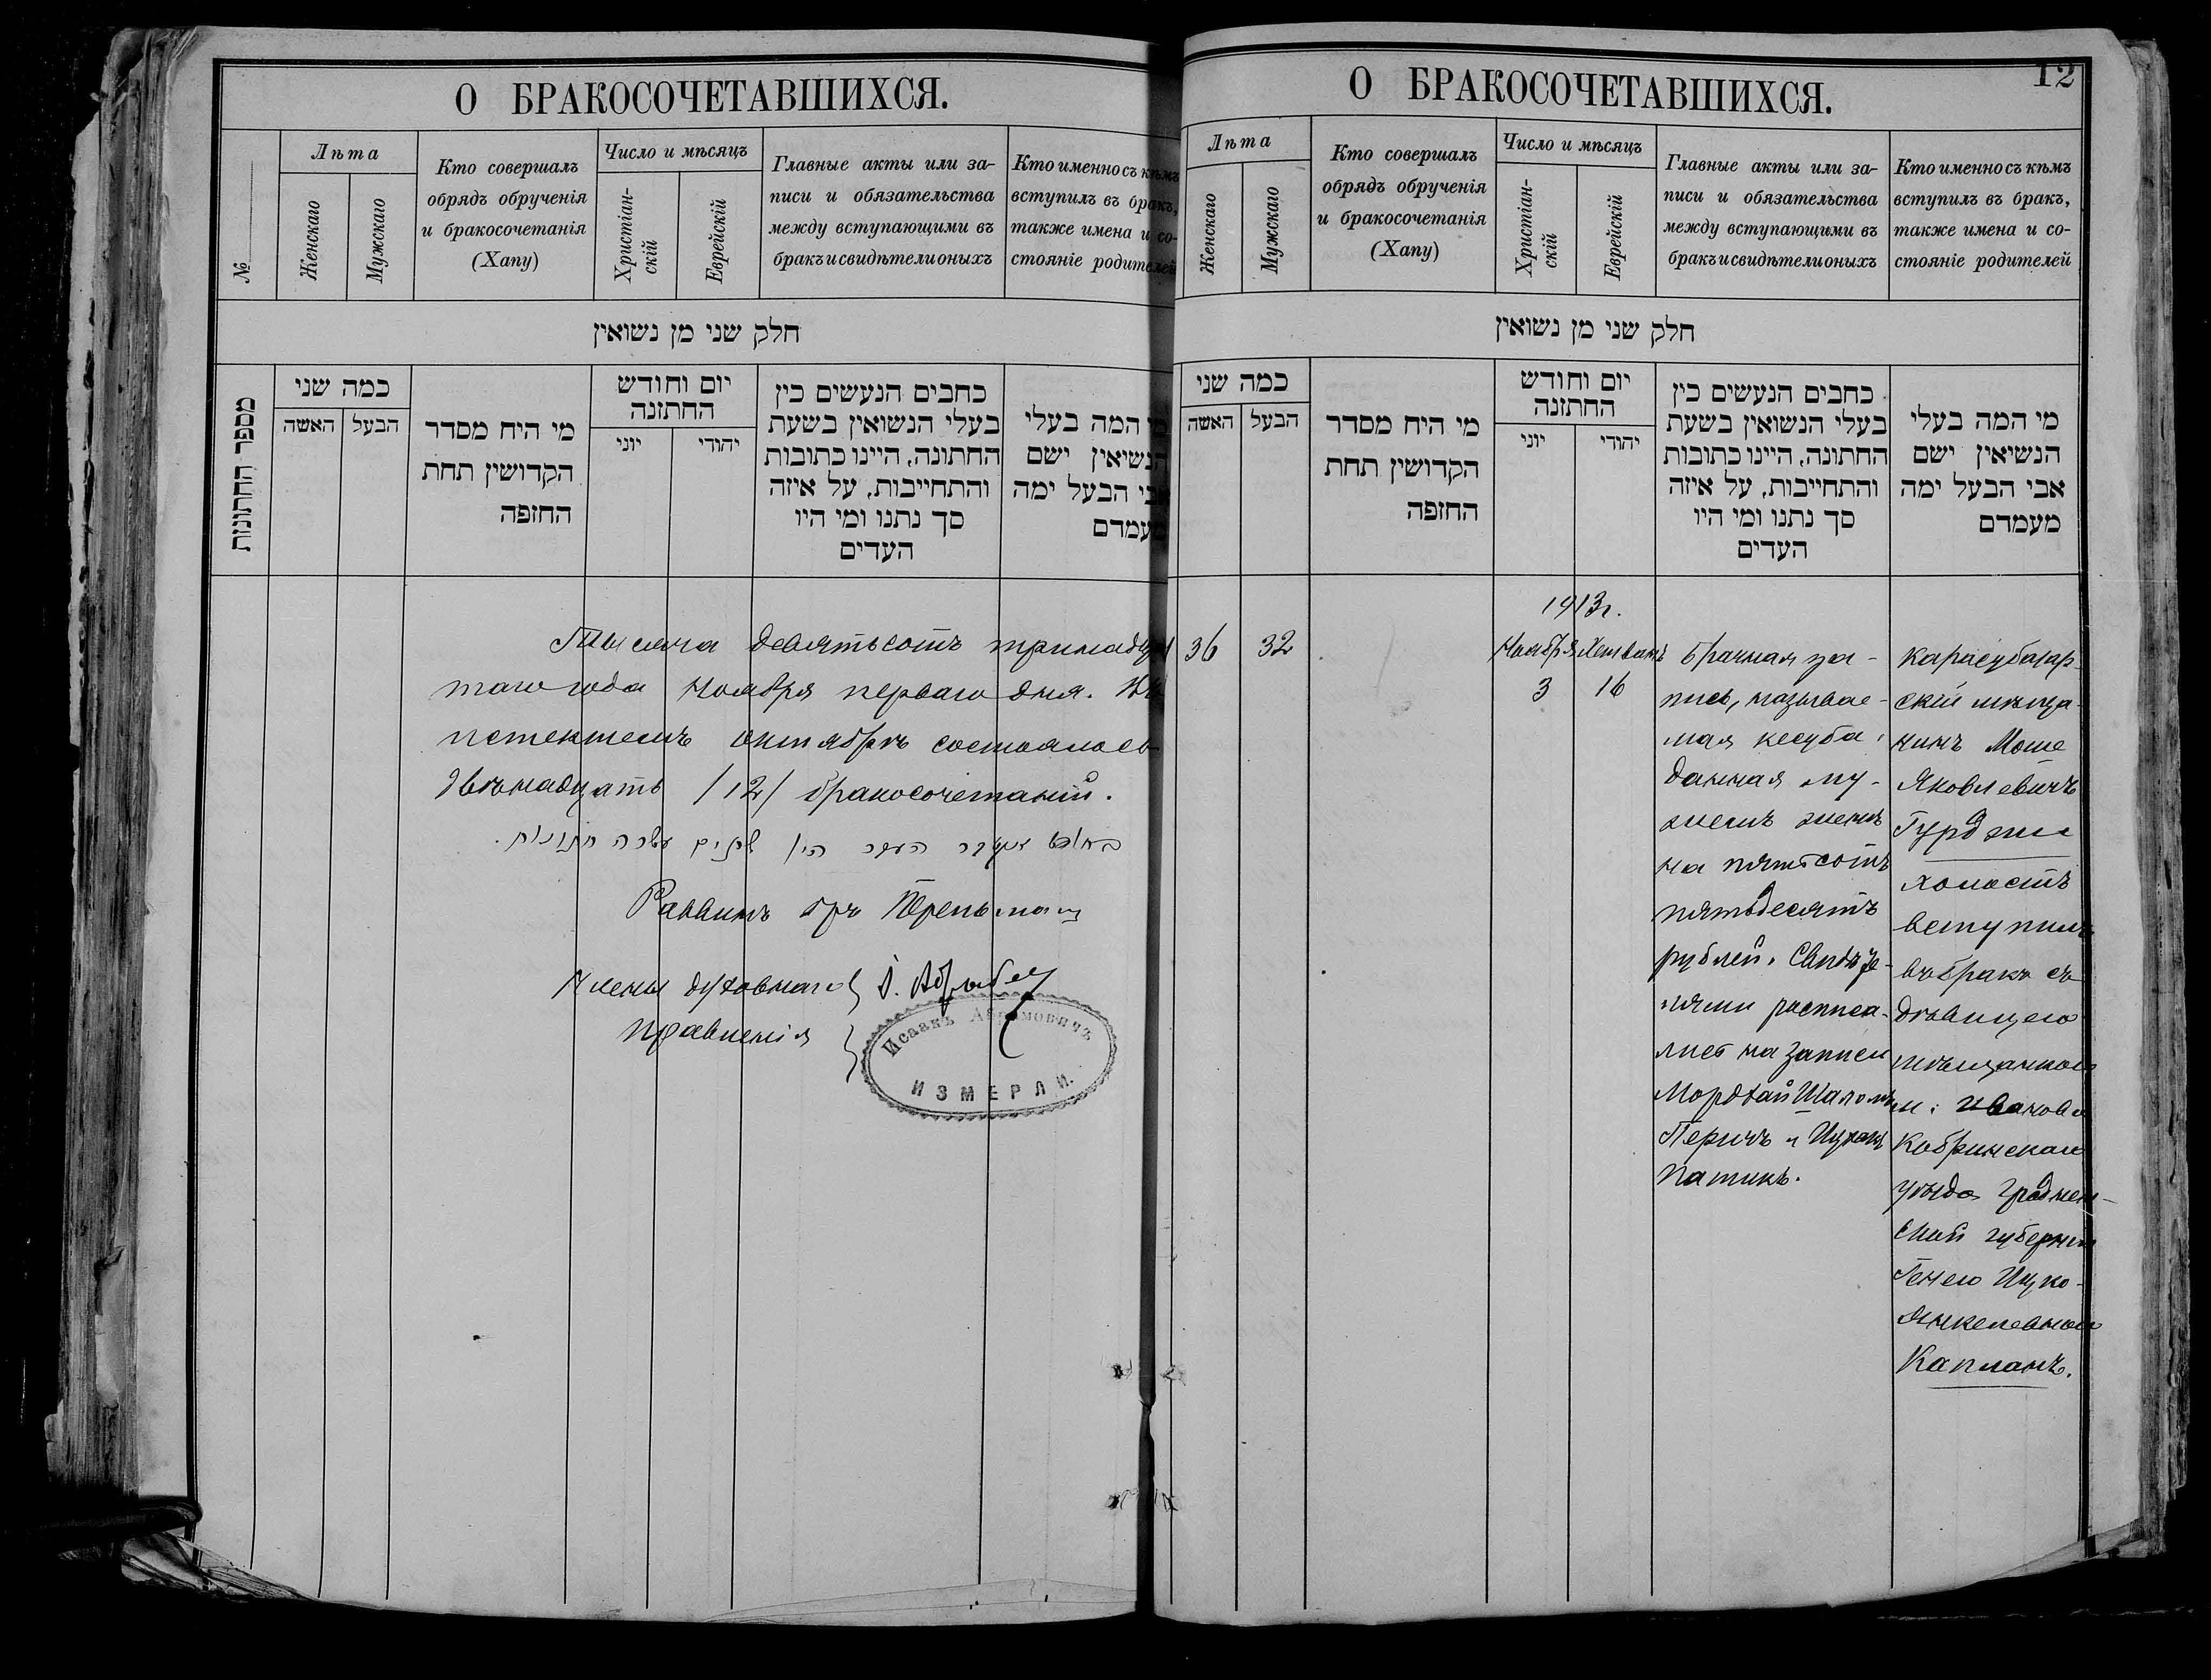 О БРАКОСОЧЕТАВШИХСЯ.
№
Лѣта
Женскаго
Мужскаго
Кто совершалъ
обрядъ обрученія
и бракосочетанія
(Хапу)
Число и мѣсяцъ
Христіан-
скій
Еврейскій
Главные акты или за-
писи и обязательства
между вступающими въ
бракъ и свидѣтели оныхъ
Кто именно съ кѣмъ
вступилъ въ бракъ,
также имена и со-
стояніе родителей
חלק שני מן נשואין
מספר החתונות
כמה שני
האשה
הבעל
מי היח מסדר
הקדושין תחת
החזפה
יום וחודש
החתזנה
יוני
יהודי
כחבים הנעשים כין
בעלי הנשואין בשעת
החתונה, היינו כתובות
והתחייבות, על איזה
סך נתנו ומי היו
העדים
מי המה בעלי
הנשיאין ישם
אבי הבעל ימה
מעמדם
Тысяча девятьсотъ тринадца
таго года ноября перваго дня. Въ
истекшемъ октябрѣ состоялось
двѣнадцать /12/ бракосочетаній.
שנים עשרה חתונות.
Раввинъ
Члены духовнаго
правленія
Исаакъ Абрамовичъ
ИЗМЕРЛИ.
12
О БРАКОСОЧЕТАВШИХСЯ.
Лѣта
Женскаго
Мужскаго
Кто совершалъ
обрядъ обрученія
и бракосочетанія
(Хапу)
Число и мѣсяцъ
Христіан-
скій
Еврейскій
Главные акты или за-
писи и обязательства
между вступающими въ
бракъ и свидѣтели оныхъ
Кто именно съ кѣмъ
вступилъ въ бракъ,
также имена и со-
стояніе родителей
חלק שני מן נשואין
כמה שני
האשה
הבעל
מי היח מסדר
הקדושין תחת
החזפה
יום וחודש
החתזנה
יוני
יהודי
כחבים הנעשים כין
בעלי הנשואין בשעת
החתונה, היינו כתובות
והתחייבות, על איזה
סך נתנו ומי היו
העדים
מי המה בעלי
הנשיאין ישם
אבי הבעל ימה
מעמדם
36
32
1913г.
Ноября
3
Хешванъ
16
Брачная за-
пись, называе-
мая кесуба,
данная му-
жемъ женѣ
на пятьсотъ
пятьдесятъ
рублей. Свидѣте-
лями расписа-
лись на записи
Мордхай Шаломъ
Перичъ и Ицхакъ
Патикъ.
Карасубазар-
скій мѣща-
нинъ Моше
Яковлевичъ
Гурджи
холостъ
вступилъ
въ бракъ съ
дѣвицею
мѣщанкою
м. Иваново
Кобринскаго
уѣзда Гроднен-
ской губерніи
Генею Ицко-
Янкелевною
Капланъ.